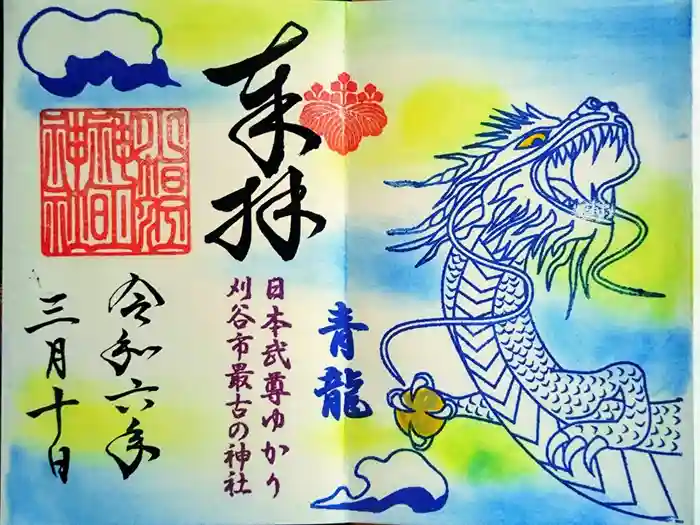 奉拝
日本武尊ゆかり
刈谷市最古の神社
青龍
令和六年
三月十日